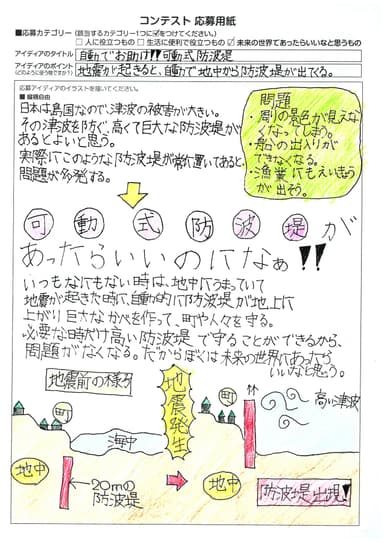 コンテスト 応募用紙
■応募カテゴリー(該当するカテゴリー1つに☑をつけてください。)
□ 人に役立つもの □ 生活に便利で役立つもの ☑ 未来の世界であったらいいなと思うもの
アイディアのタイトル 自動でお助け!!可動式防波堤
アイディアのポイント
(どのように使う物ですか?) 地震が起きると、自動で地中から防波堤が出てくる。
応募アイディアのイラストを描いてください。
■ 縦横自由
日本は島国なので、津波の被害が大きい。
その津波を防ぐ、高くて巨大な防波堤が
あるとよいと思う。
実際にこのような防波堤が常に置いてあると、
問題が多発する。
問題
・周りの景色が見えな
くなってしまう。
・船の出入りが
できなくなる。
・漁業にもえいきょう
が出そう。
可動式防波堤が
あったらいいのになぁ!!
いつもなにもない時は、地中にうまっていて
地震が起きた時に、自動的に防波堤が地上に
上がり巨大なかべを作って、町や人々を守る。
必要な時だけ高い防波堤で守ることができるから、
問題がなくなる。だからぼくは未来の世界にあったら
いいなと思う。
地震前の様子
地震発生
町
町
高い津波
海中
地中
地中
20mの
防波堤
防波堤出現!